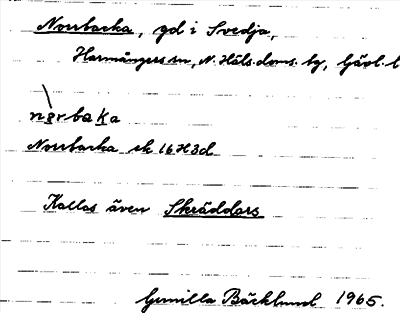 Norrbacka, gd i Svedja,
Harmångers sn, N. Häls. doms. bg, Gävl. l
nørbaka
Norrbacka ek 16H3d
Kallas även Skräddars
Gunilla Bäcklund 1965.